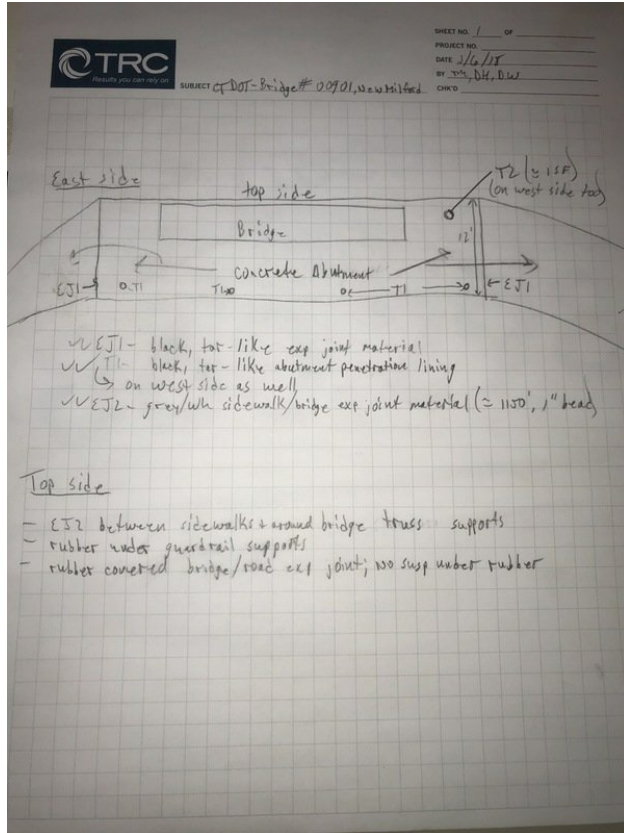 SHEET NO. 1 OF
PROJECT NO.
DATE 2/6/18
BY TM, DH, DW
CHK'D
TRC
Results you can rely on
SUBJECT CTDOT-Bridge# 00901, New Milford
East side
top side
T2 (≈1SF)
(on west side too)
Bridge
12'
Concrete Abutment
EJ1
T1
T1
T1
EJ1
✓✓ EJ1- black, tar-like exp joint material
✓✓ T1- black, tar-like abutment penetration lining
↳ on west side as well
✓✓ EJ2- grey/wh sidewalk/bridge exp joint material (≈ 1150', 1" bead)
Top side
- EJ2 between sidewalks + around bridge truss supports
- rubber under guardrail supports
- rubber covered bridge/road exp joint; no susp under rubber